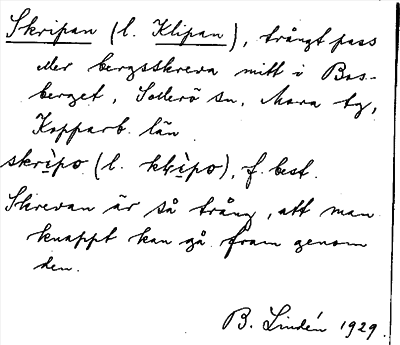 Skripan (l. Klipan), trångt pass
eller bergsskreva mitt i Bos-
berget, Sollerö sn, Mora tg,
Kopparb. län
skrìpo (l. klìpo), f. best.
Skrevan är så trång, att man
knappt kan gå fram genom
den.
B. Lindén 1929.